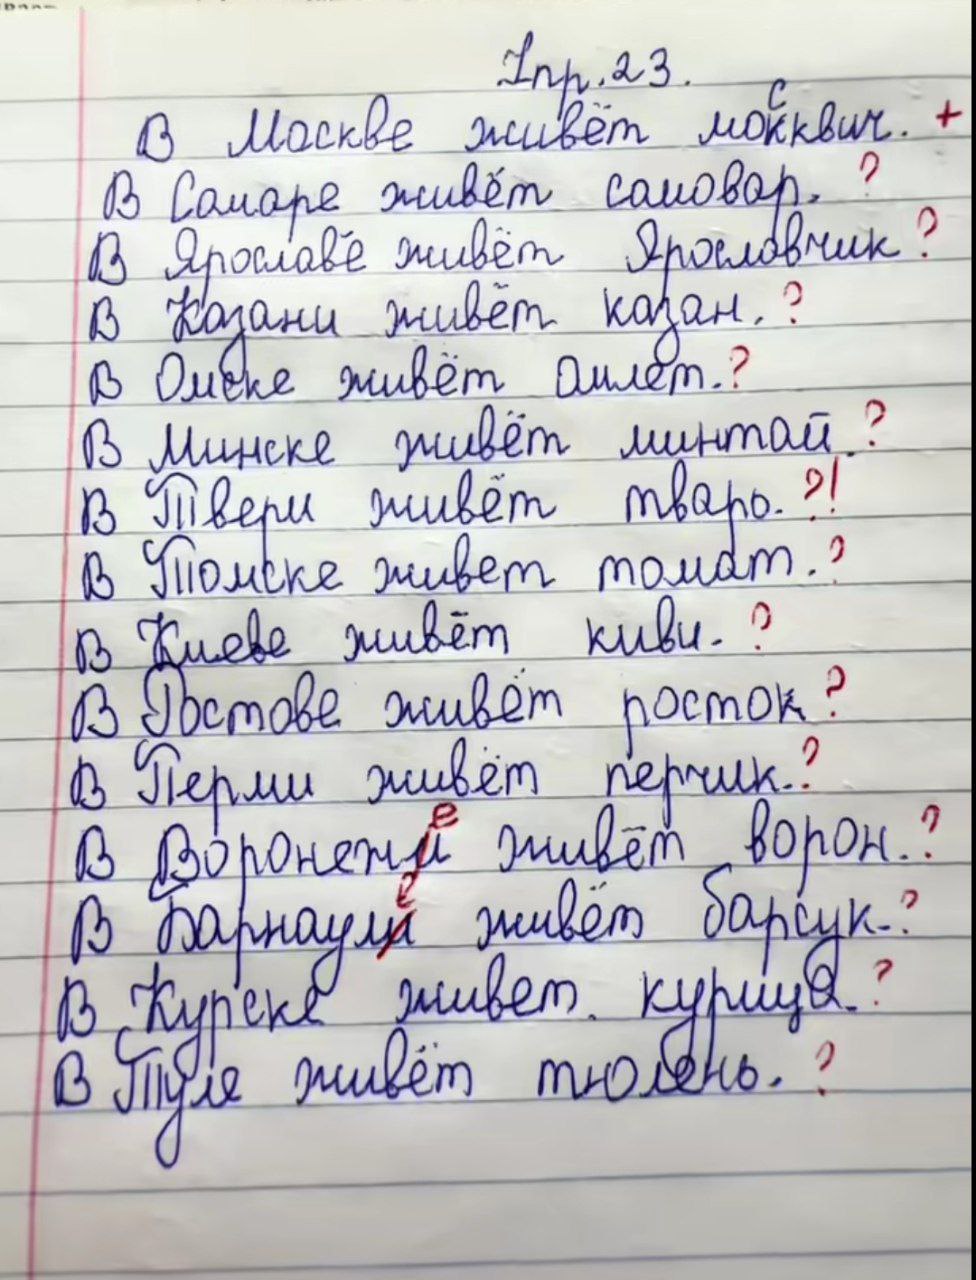 Упр. 23.
В Москве живёт мокквич. с +
В Самаре живёт самовар. ?
В Ярославе живёт Ярославчик ?
В Казани живёт казан. ?
В Омске живёт омлет. ?
В Минске живёт минтай. ?
В Твери живёт тварь. ?!
В Томске живет томат. ?
В Киеве живёт киви. ?
В Ростове живёт росток. ?
В Перми живёт перчик. ?
В Воронежи е живёт ворон. ?
В Барнаули е живёт барсук. ?
В Курске живет курица. ?
В Туле живёт тюлень. ?